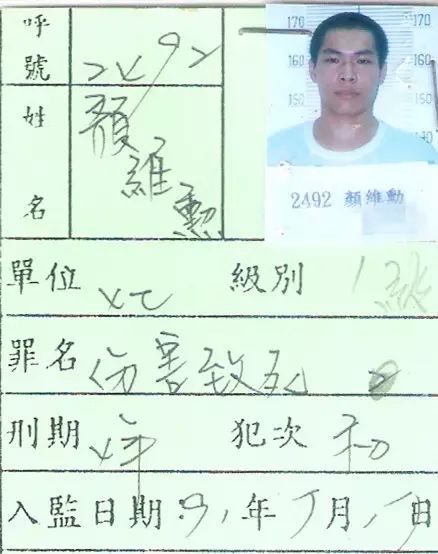 呼號 2492
170 170
160 160
150 150
140
姓名 顏維勳
2492 顏維勳
單位 級別 1級
罪名 伤害致死
刑期 年 犯次 初
入監日期: 91年 月 日